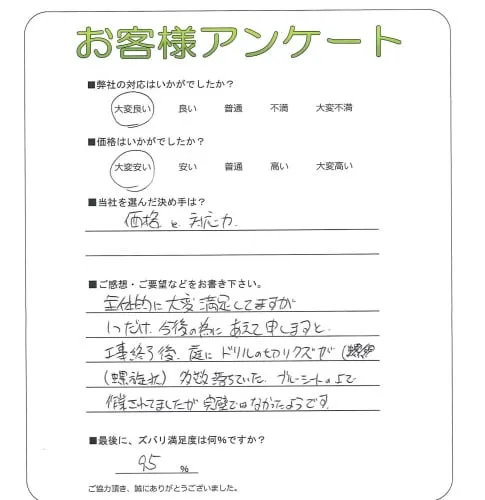 お客様アンケート
■弊社の対応はいかがでしたか？
大変良い 良い 普通 不満 大変不満
■価格はいかがでしたか？
大変安い 安い 普通 高い 大変高い
■当社を選んだ決め手は？
価格 と 対応力.
■ご感想・ご要望などをお書き下さい。
全体的に大変満足してますが
1つだけ、今後の為に あえて申しますと、
工事終了後、庭に ドリルの切りクズが
(螺旋状) 多数落ちていた、ブルーシートの上で
作業されてましたが完璧ではなかったようです。
■最後に、ズバリ満足度は何％ですか？
95 ％
ご協力頂き、誠にありがとうございました。